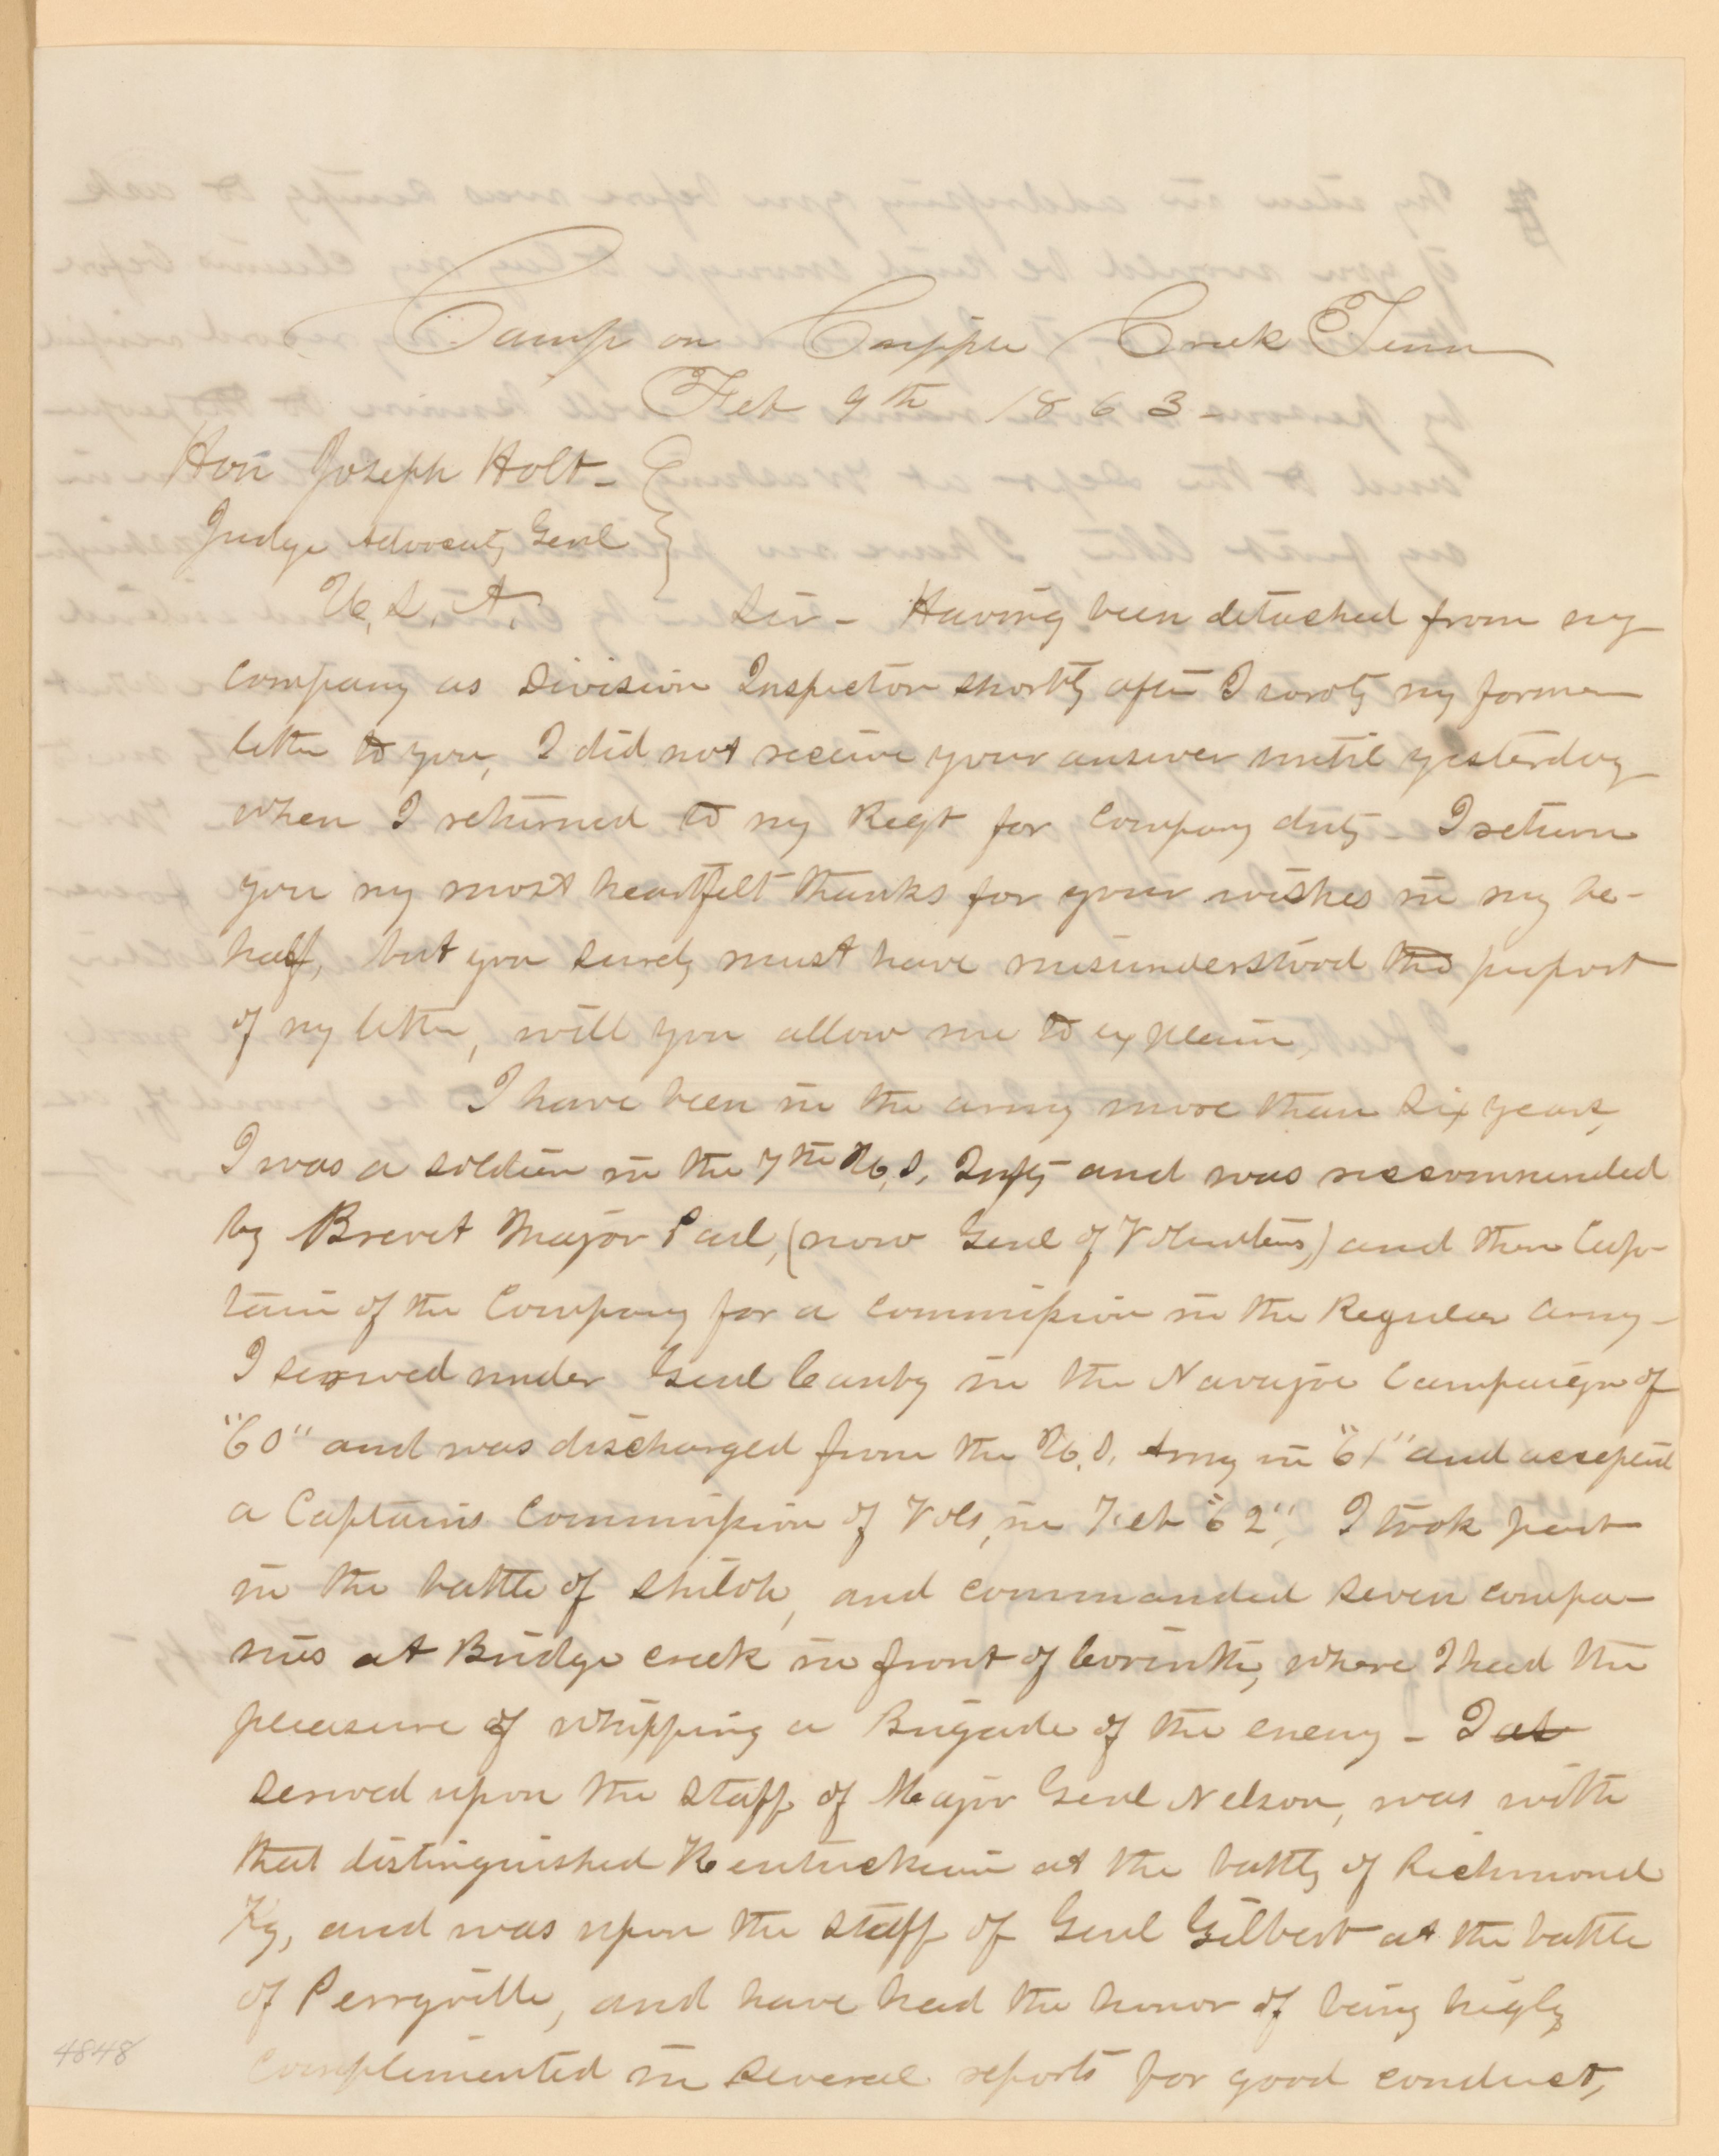 Camp on Cripple Creek Tenn
Feb 9th 1863-
Hon Joseph Holt-
Judge Advocate Genl
U, S, A,   Sir- Having been detached from my
company as Division Inspector shortly after I wrote my former
letter to you, I did not receive your answer until yesterday
when I returned to my Regt for Company duty- I return
you my most heartfelt thanks for your wishes in my be-
half, but you surely must have misunderstood the purport
of my letter, will you allow me to explain,
I have been in the army more than six years,
I was a soldier in the 7th U,S, Infty and was reccommended
by Brevet Major Paul, (now Genl of Volunteers) and then Cap-
tain of the Company for a commission in the Regular army-
I served under Genl Canby in the Navajoe Campaign of
"60" and was discharged from the U,S, Army in "61" and accepted
a Captains Commission of Vols, in Feb "62", I took part
in the battle of Shiloh, and commanded seven compa-
nies at Bridge creek in front of Corinth, where I had the
pleasure of whipping a Brigade of the enemy- I at
served upon the staff of Major Genl Nelson, was with
that distinguished Kentuckian at the battle of Richmond
Ky, and was upon the staff of Genl Gilbert at the battle
of Perryville, and have had the honor of being higly
complimented in several reports for good conduct,
4848